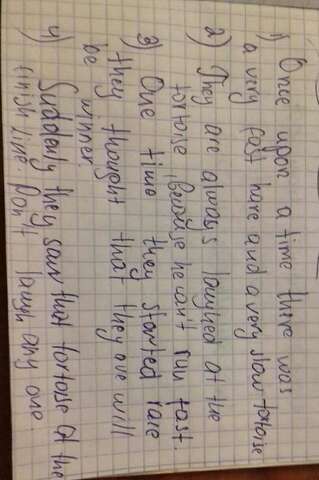 1) Once upon a time there was
a very fast hare and a very slow tortoise
2) They are always laughed at the
tortoise because he can't run fast.
3) One time they started rare
they thought that they are will
be winner.
4) Suddely they saw that tortoise at the
finish line. Don't laugh any one